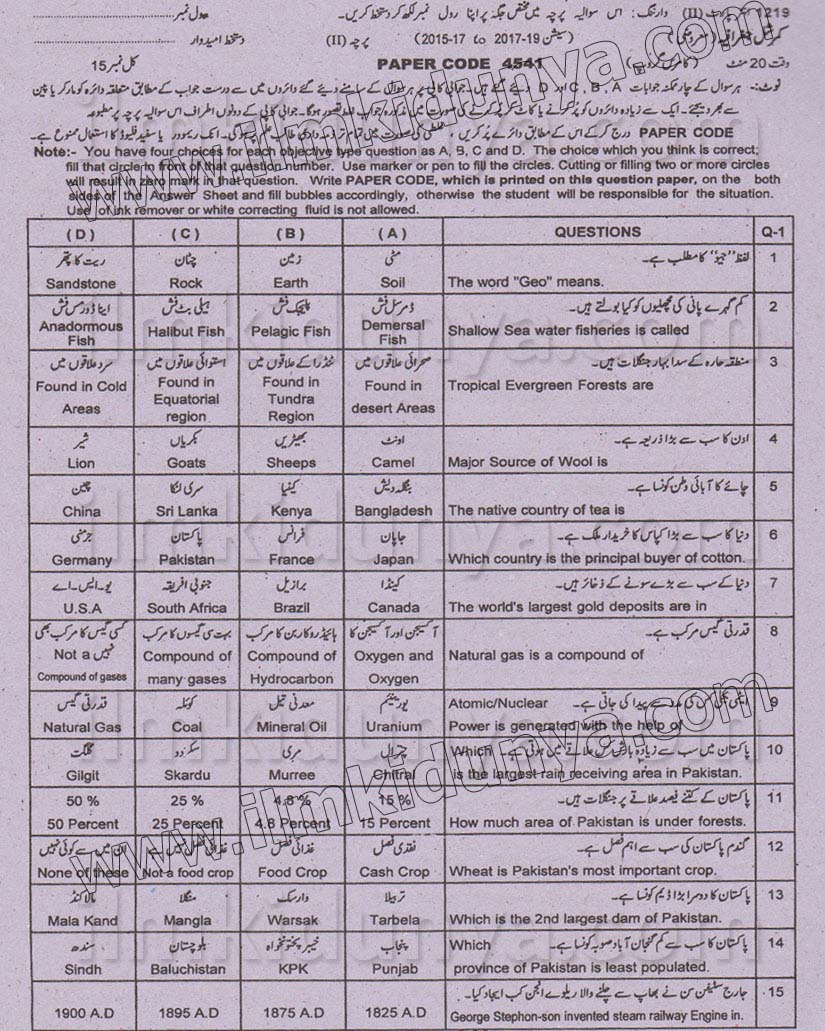 1219 وارننگ: اس سوالیہ پرچہ میں مختص جگہ پر اپنا رول نمبر لکھ کر دستخط کریں۔ رول نمبر
(سیشن 2017-19 to 2015-17) پرچہ (II) دستخط امیدوار
وقت 20 منٹ PAPER CODE 4541 کل نمبر 15
نوٹ:- ہر سوال کے چار ممکنہ جوابات A, B, C اور D دیئے گئے ہیں۔ جوابی کاپی پر ہر سوال کے سامنے دیئے گئے دائروں میں سے درست جواب کے مطابق متعلقہ دائرہ کو مارکر یا پین
سے بھر دیجئے۔ ایک سے زیادہ دائروں کو پُر کرنے یا کاٹ کر پُر کرنے کی صورت میں مذکورہ جواب غلط تصور ہوگا۔ جوابی کاپی کے دونوں اطراف اس سوالیہ پرچہ پر مطبوعہ
PAPER CODE درج کر کے اس کے مطابق دائرے پُر کریں، استعمال ممنوع ہے۔
Note:- You have four choices for each objective type question as A, B, C and D. The choice which you think is correct;
fill that circle in front of that question number. Use marker or pen to fill the circles. Cutting or filling two or more circles
will result in zero mark in that question. Write PAPER CODE, which is printed on this question paper, on the both
sides of the Answer Sheet and fill bubbles accordingly, otherwise the student will be responsible for the situation.
Use of ink remover or white correcting fluid is not allowed.
(D) (C) (B) (A) QUESTIONS Q-1
ریت کا پتھر چٹان زمین مٹی لفظ "جیو" کا مطلب ہے۔ 1
Sandstone Rock Earth Soil The word "Geo" means.
اینا ڈورمس فش ہیلی بٹ فش پلیجک فش ڈمرسل فش کم گہرے پانی کی مچھلیوں کو کیا بولتے ہیں۔ 2
Anadormous Fish Halibut Fish Pelagic Fish Demersal Fish Shallow Sea water fisheries is called
سرد علاقوں میں استوائی علاقوں میں ٹنڈرا کے علاقوں میں صحرائی علاقوں میں منطقہ حارہ کے سدا بہار جنگلات ہیں۔ 3
Found in Cold Areas Found in Equatorial region Found in Tundra Region Found in desert Areas Tropical Evergreen Forests are
شیر بکریاں بھیڑیں اونٹ اون کا سب سے بڑا ذریعہ ہے۔ 4
Lion Goats Sheeps Camel Major Source of Wool is
چین سری لنکا کینیا بنگلہ دیش چائے کا آبائی وطن کونسا ہے۔ 5
China Sri Lanka Kenya Bangladesh The native country of tea is
جرمنی پاکستان فرانس جاپان دنیا کا سب سے بڑا کپاس کا خریدار ملک ہے۔ 6
Germany Pakistan France Japan Which country is the principal buyer of cotton.
یو۔ایس۔اے جنوبی افریقہ برازیل کینیڈا دنیا کے سب سے بڑے سونے کے ذخائر ہیں۔ 7
U.S.A South Africa Brazil Canada The world's largest gold deposits are in
کسی گیس کا مرکب بھی نہیں بہت سی گیسوں کا مرکب ہائیڈروکاربن کا مرکب آکسیجن اور آکسیجن کا قدرتی گیس مرکب ہے۔ 8
Not a Compound of gases Compound of many gases Compound of Hydrocarbon Oxygen and Oxygen Natural gas is a compound of
قدرتی گیس کوئلہ معدنی تیل یورینیئم ایٹمی بجلی کس کی مدد سے پیدا کی جاتی ہے۔ Atomic/Nuclear 9
Natural Gas Coal Mineral Oil Uranium Power is generated with the help of
گلگت سکردو مری چترال پاکستان میں سب سے زیادہ بارش کس علاقے میں ہوتی ہے۔ Which 10
Gilgit Skardu Murree Chitral is the largest rain receiving area in Pakistan.
50 % 25 % 4.8 % 15 % پاکستان کے کتنے فیصد علاقے پر جنگلات ہیں۔ 11
50 Percent 25 Percent 4.8 Percent 15 Percent How much area of Pakistan is under forests.
ان میں سے کوئی نہیں غذائی فصل نہیں ہے غذائی فصل نقدی فصل گندم پاکستان کی سب سے اہم فصل ہے۔ 12
None of these Not a food crop Food Crop Cash Crop Wheat is Pakistan's most important crop.
مالاکنڈ منگلا وارسک تربیلا پاکستان کا دوسرا بڑا ڈیم کونسا ہے۔ 13
Mala Kand Mangla Warsak Tarbela Which is the 2nd largest dam of Pakistan.
سندھ بلوچستان خیبر پختونخواہ پنجاب پاکستان کا سب سے کم گنجان آباد صوبہ کونسا ہے۔ Which 14
Sindh Baluchistan KPK Punjab province of Pakistan is least populated.
جارج سٹیفن سن نے بھاپ سے چلنے والا ریلوے انجن کب ایجاد کیا۔ 15
1900 A.D 1895 A.D 1875 A.D 1825 A.D George Stephon-son invented steam railway Engine in.
www.ilmkidunya.com
www.ilmkidunya.com